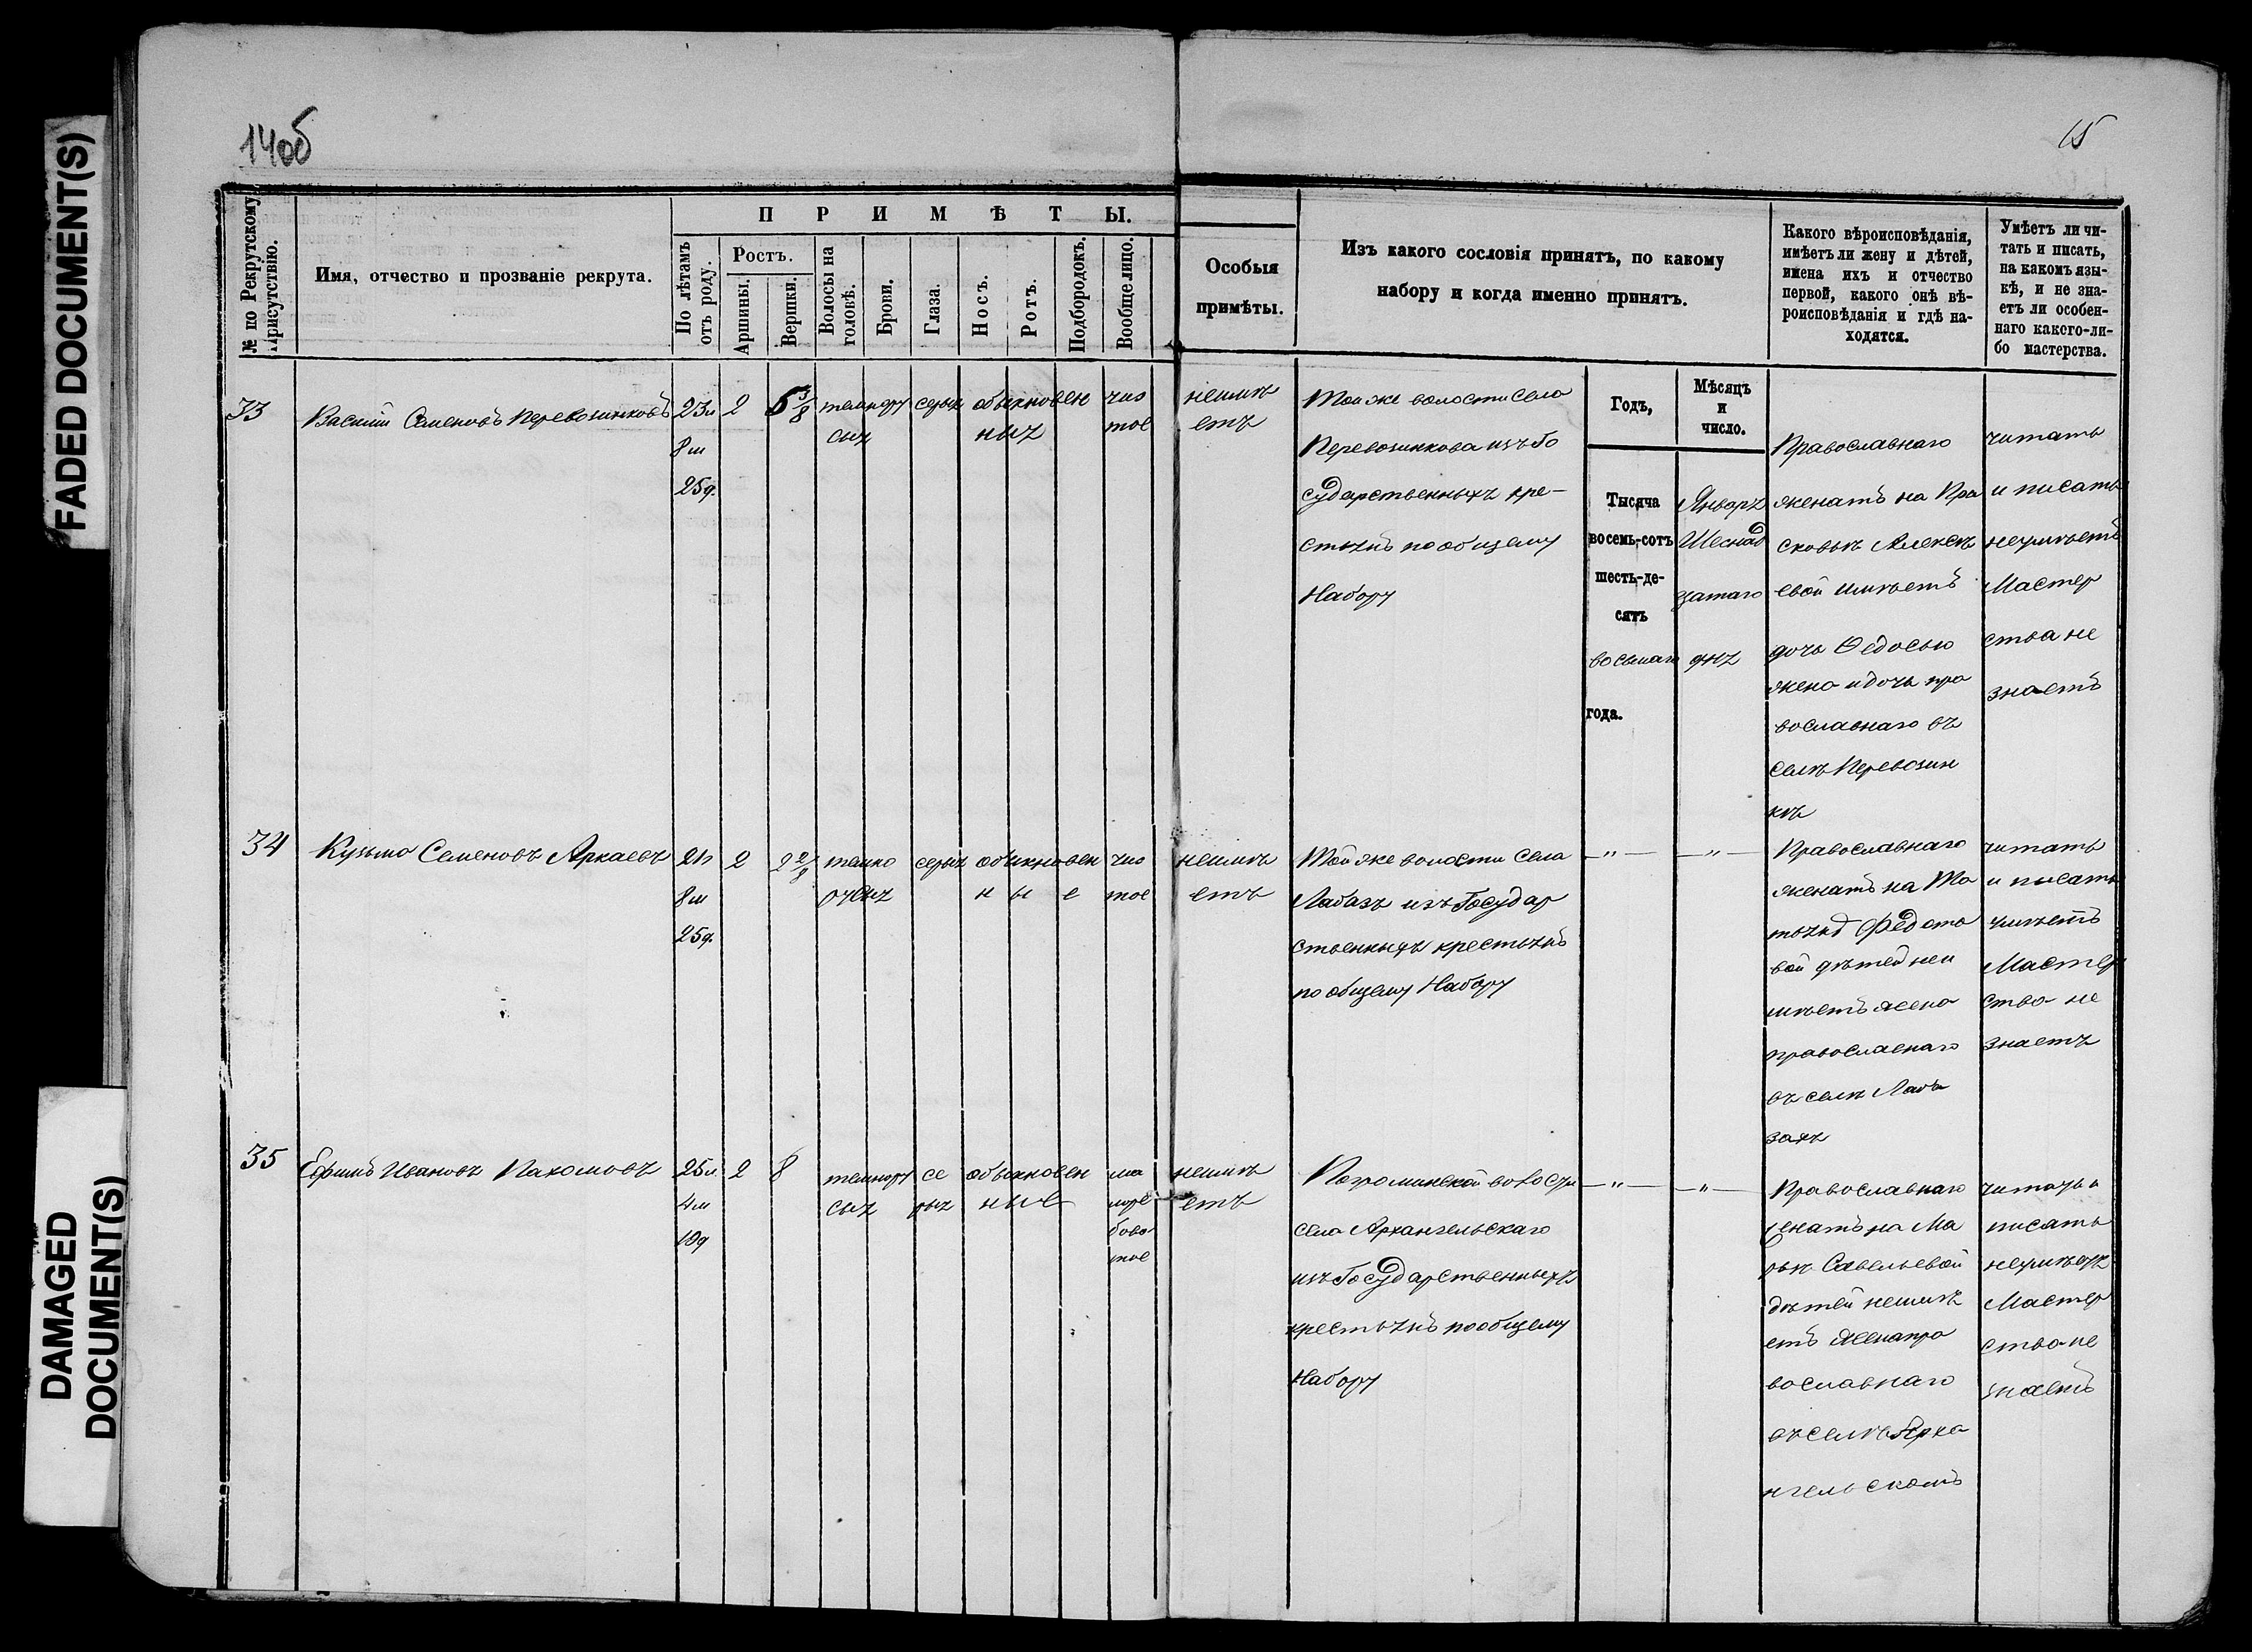 FADED DOCUMENT(S)
DAMAGED
DOCUMENT(S)
14об
15
№ по Рекрутскому
Присутствію.
Имя, отчество и прозваніе рекрута.
ПРИМѢТЫ.
По лѣтамъ
отъ роду.
Ростъ.
Аршины.
Вершки.
Волосы на
головѣ.
Брови.
Глаза.
Носъ.
Ротъ.
Подбородокъ.
Вообще лицо.
Особыя
примѣты.
Изъ какого сословія принятъ, по какому
набору и когда именно принятъ.
Какого вѣроисповѣданія,
имѣетъ ли жену и дѣтей,
имена ихъ и отчество
первой, какого онѣ вѣ-
роисповѣданія и гдѣ на-
ходятся.
Умѣетъ ли чи-
тать и писать,
на какомъ язы-
кѣ, и не зна-
етъ ли особен-
наго какого-ли-
бо мастерства.
33
Василій Семеновъ Перевозинковъ
23л
8м
25д.
2
5 3/8
темнору
сыя
серыя
обыкновен
ныя
чис
тое
неимѣ
етъ
Тойже волости села
Перевозинкова изъ го
сударственныхъ кре-
стьянъ по общему
Набору
Годъ,
Мѣсяцъ
и
число.
Тысяча
восемь-сотъ
шесть-де-
сятъ
восьмаго
года.
Январь
Шеснад
цатаго
дня
Православнаго
женатъ на Пра
сковьѣ Алексѣ
евой имѣетъ
дочь Ѳедосью
жена и дочь пра
вославнаго въ
селѣ Перевозин
кѣ
читать
и писать
неумѣетъ
Мастер
ства не
знаетъ
34
Кузьма Семеновъ Аркаевъ
21л
8м
25д.
2
2 2/8
темно
русыя
серыя
обыкновен
ные
чис
тое
неимѣ
етъ
Тойже волости Села
Лабазъ изъ Государ
ственныхъ крестьянъ
по общему Набору
—"—
—"—
Православнаго
женатъ на Та
тьянѣ Федото
вой дѣтей не и
мѣетъ жена
православнаго
въ селѣ Лаба
захъ
читать
и писать
умѣетъ
Мастер
ства не
знаетъ
35
Ефимъ Ивановъ Пахомовъ
25л.
4м
10д
2
8
темнору
сыя
се
рыя
обыкновен
ные
неимѣ
етъ
Погроминской волости
села Архангельскаго
изъ Государственныхъ
крестьянъ по общему
Набору
—"—
—"—
Православнаго
женатъ на Ма
рьѣ Савельевой
дѣтей неимѣ
етъ жена пра
вославнаго
въ селѣ Арха
нгельскомъ
читать и
писать
неумѣетъ
Мастер
ства не
знаетъ